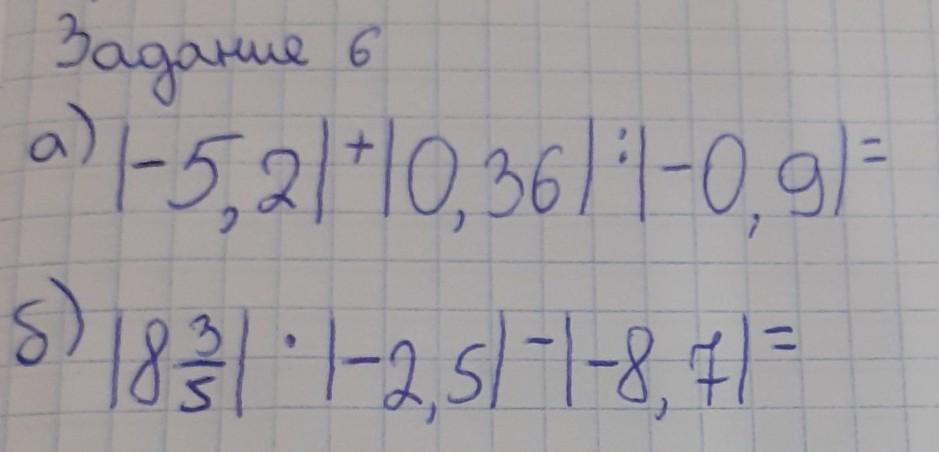 Задание 6
а) |-5,2| + |0,36| : |-0,9| =
б) |8 3/5| · |-2,5| - |-8,7| =